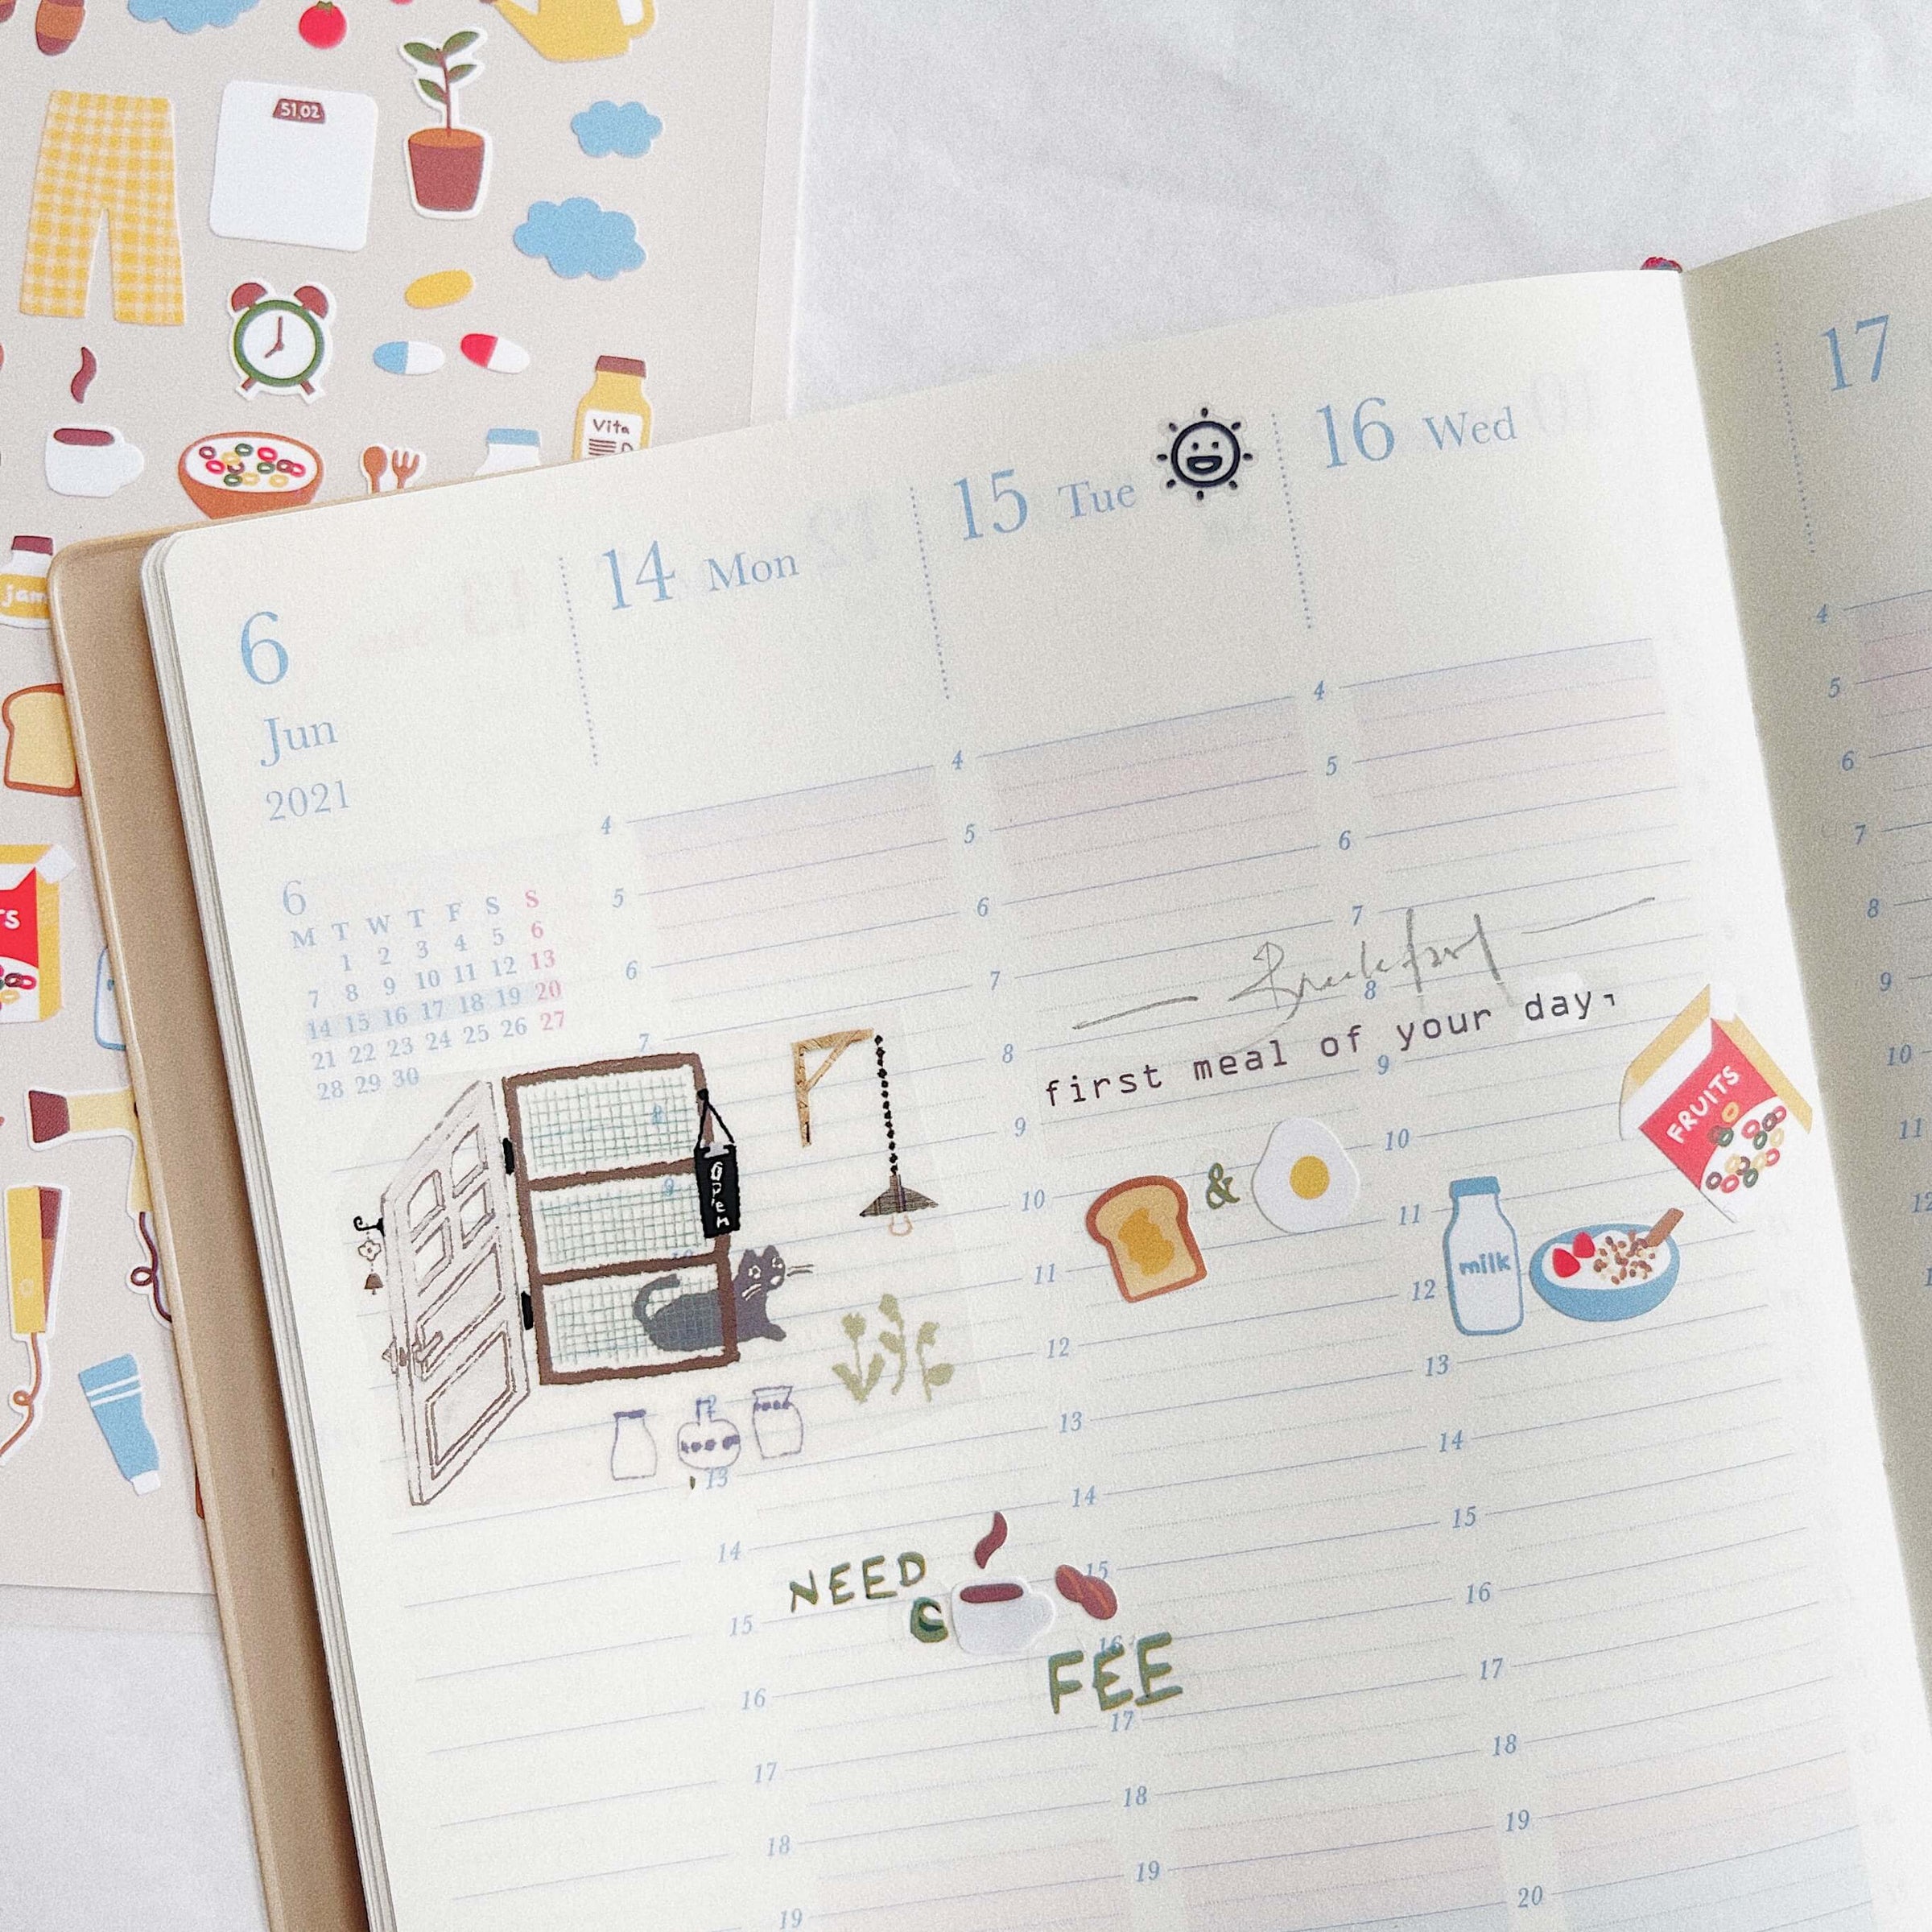 51.02
Vita
jam
TS
6
Jun
2021
14 Mon
15 Tue
16 Wed
17
6
M T W T F S S
1 2 3 4 5 6
7 8 9 10 11 12 13
14 15 16 17 18 19 20
21 22 23 24 25 26 27
28 29 30
4
5
6
7
8
9
12
13
14
15
16
17
18
19
4
5
6
7
8
9
10
11
12
13
14
15
16
17
18
19
4
5
6
7
8
9
10
11
12
13
14
15
16
17
18
19
20
4
5
6
7
8
9
10
11
12
Breakfast
first meal of your day,
FRUITS
&
milk
OPEN
NEED
C
FEE